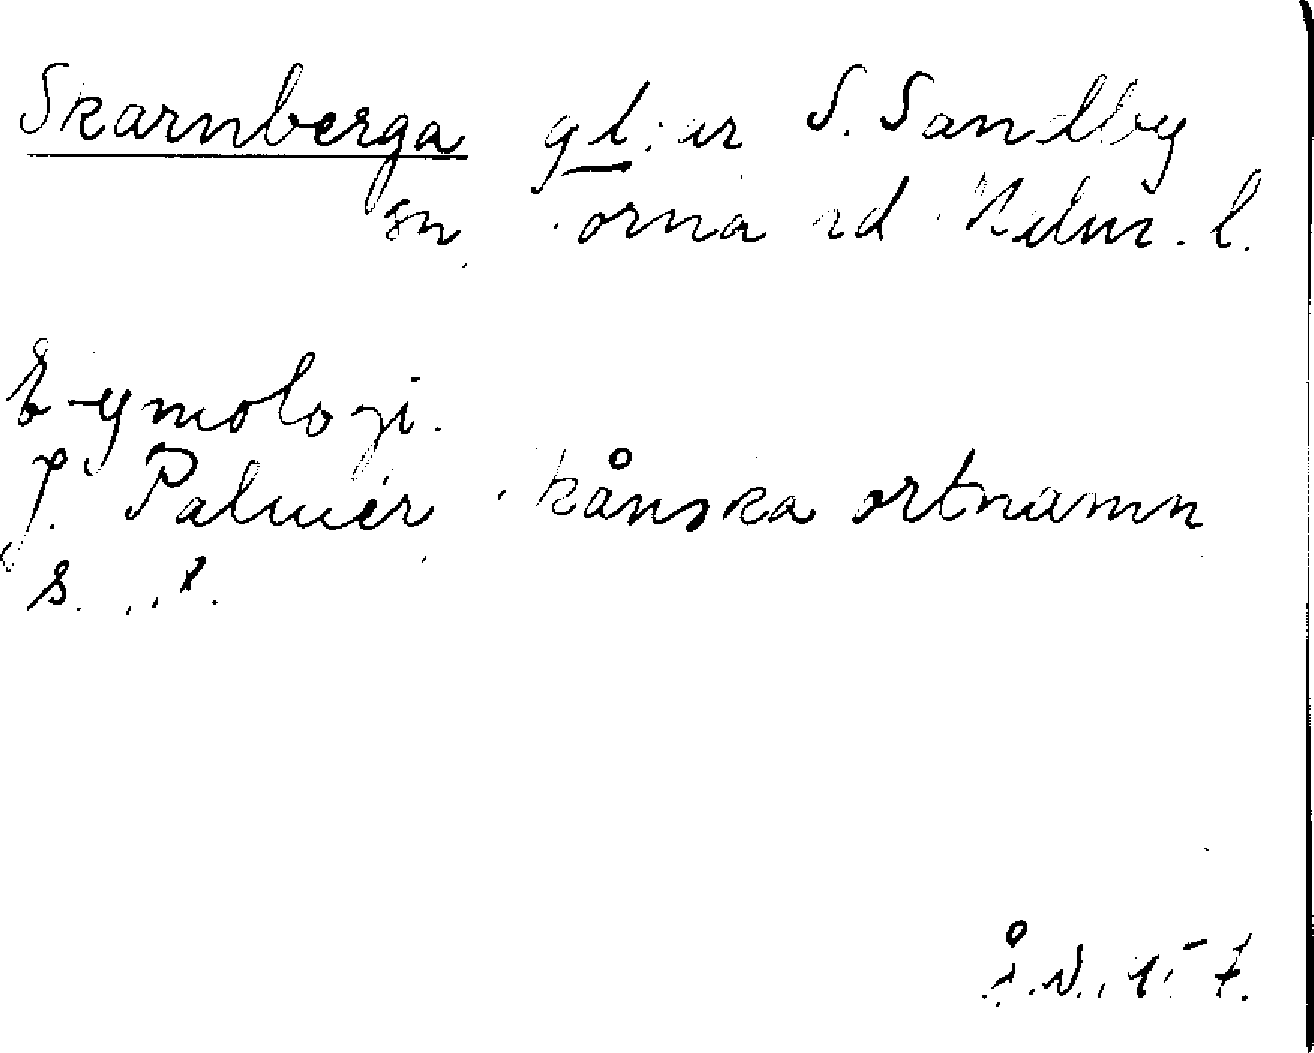 Skarnberga gl: er S. Sandby
sn Torna hd Malm. l.
Etymologi.
J. Palmér Skånska ortnamn
s.